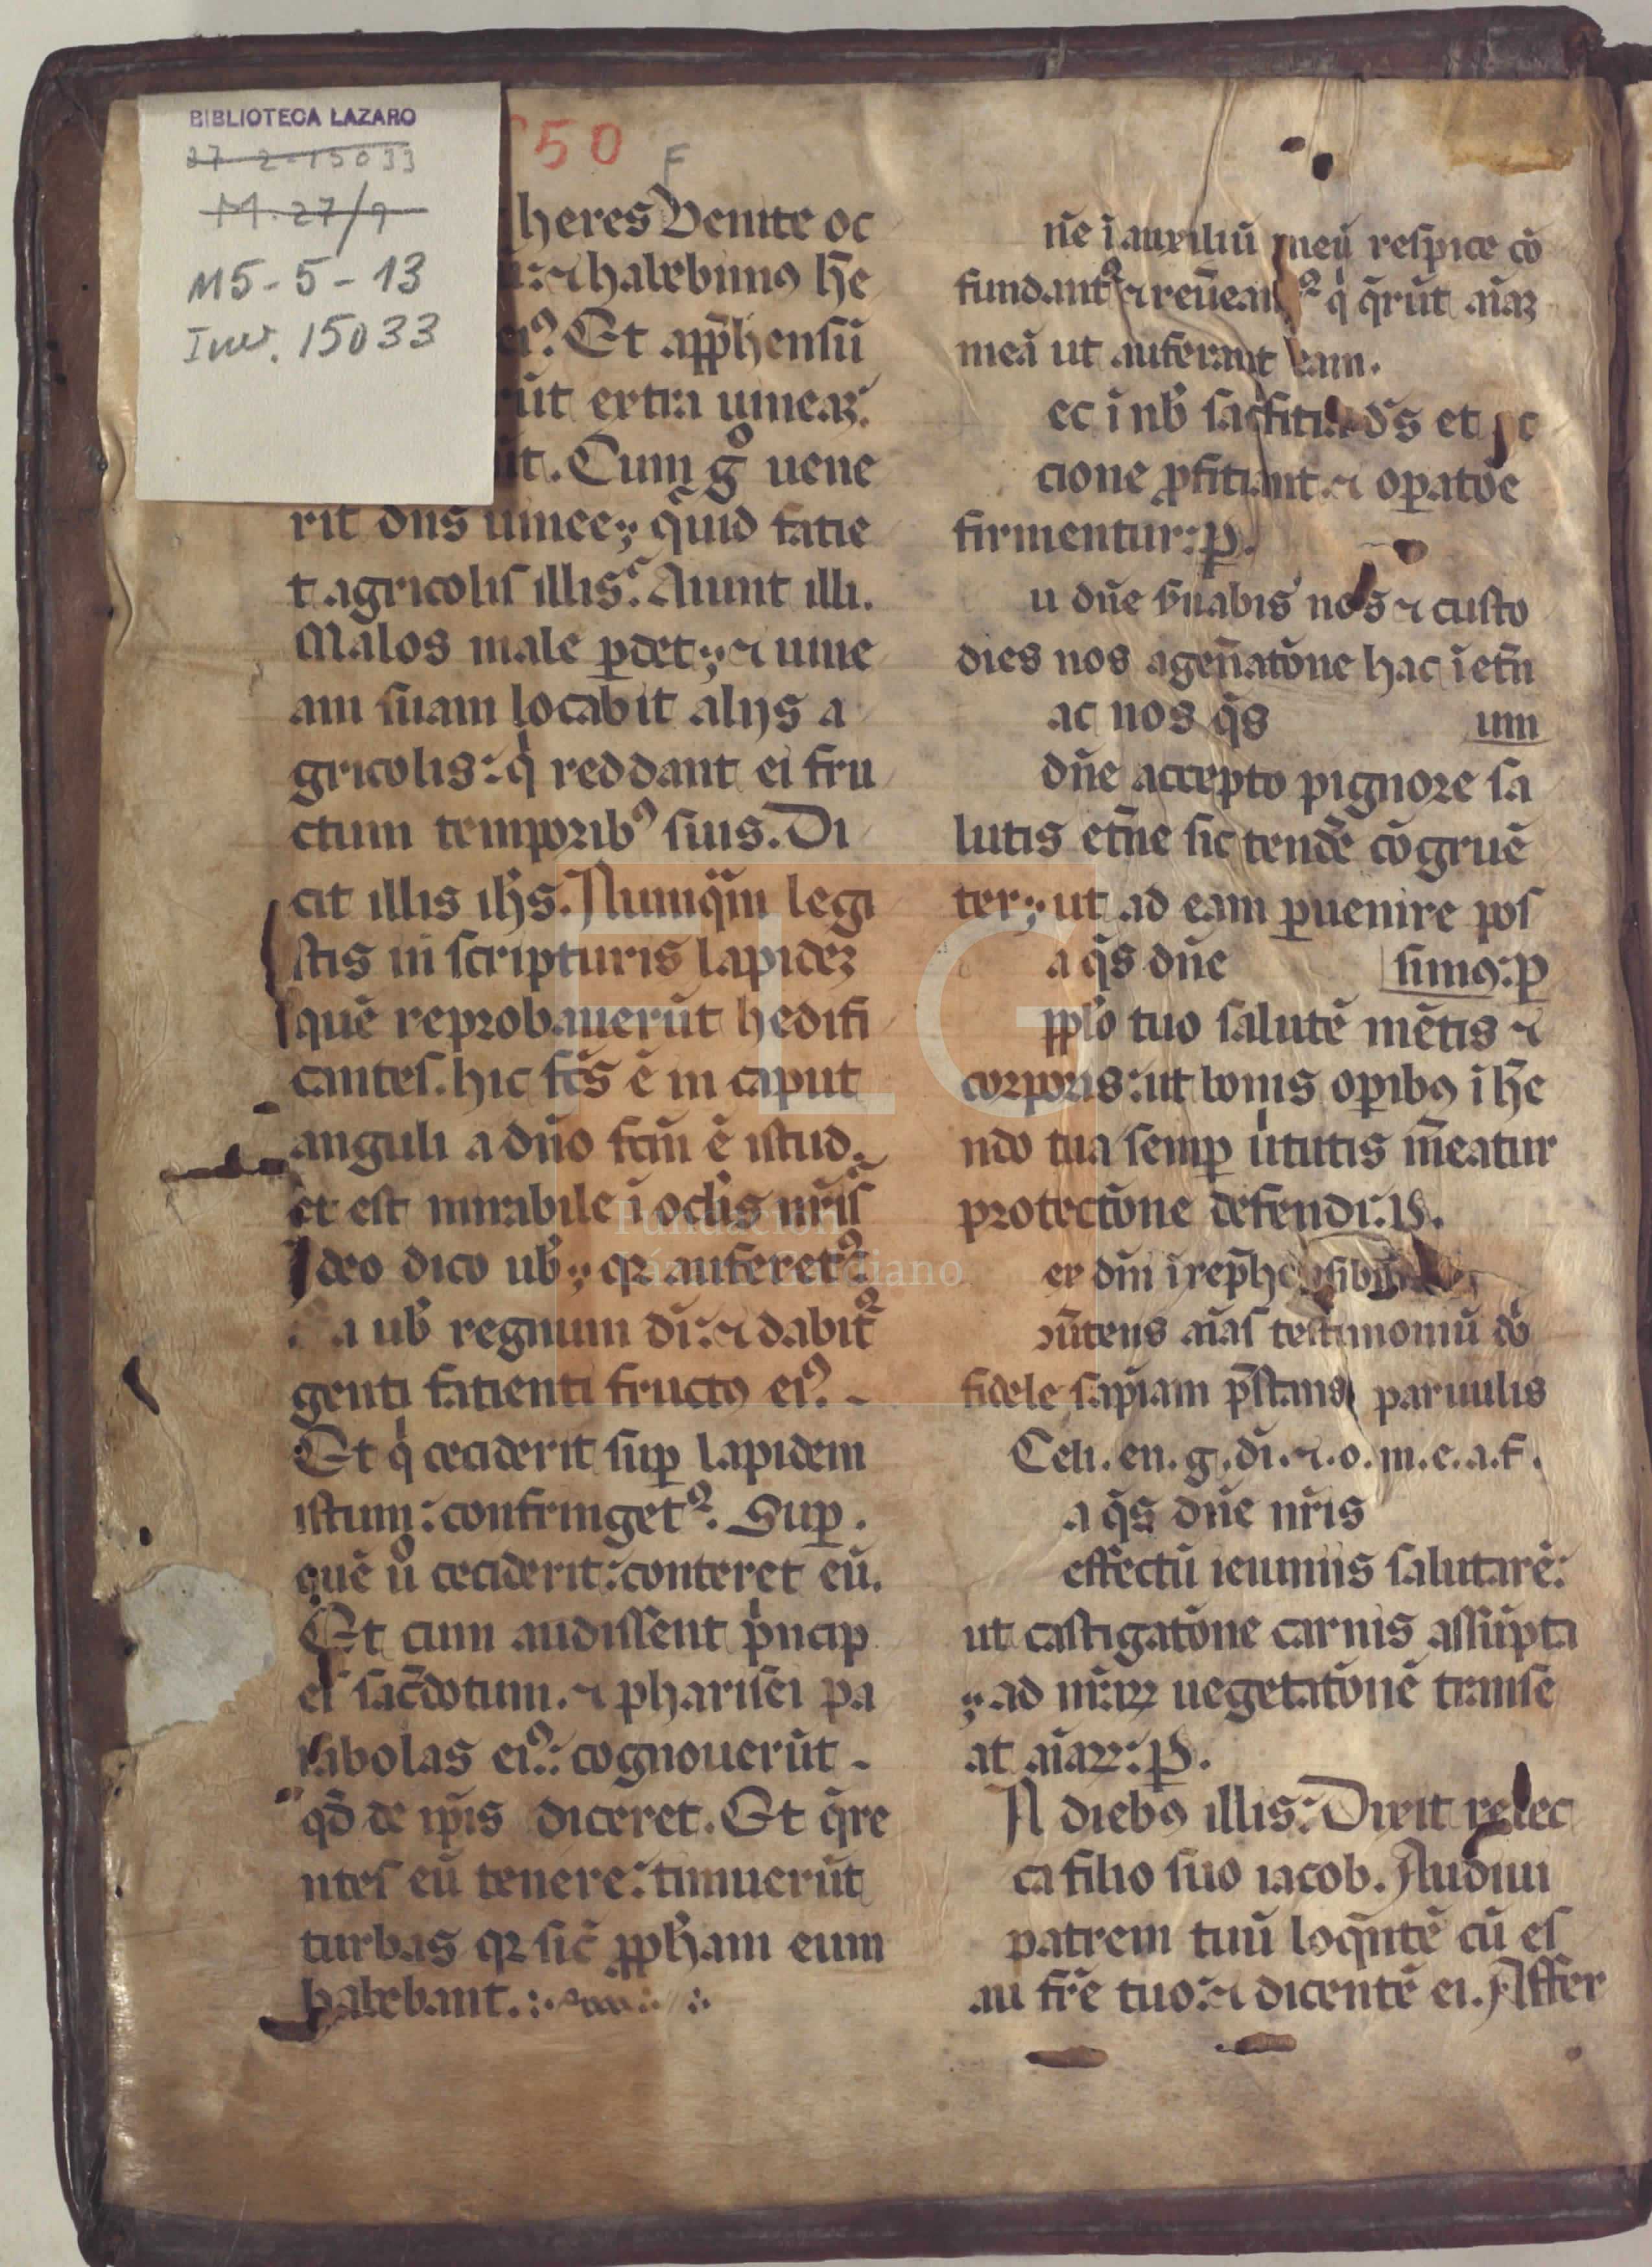 BIBLIOTECA LAZARO
27-2-15033
M.27/9
M5-5-13
Inv. 15033
50
F
heres Venite oc
ū: ⁊ habebimꝰ he
eiꝰ. Et app̄hensū
rūt extra uineaꝫ
ūt. Cum gͦ uene
rit dn̄s uinee; quid fatie
t agricolis illis. Aiunt illi.
Malos male ꝑdet; ⁊ uine
am suam locabit alijs a
gricolis: qͥ reddant ei fru
ctum temporibꝰ suis. Di
cit illis ihs̄. Numqͣm legi
stis in scripturis lapideꝫ
quē reprobauerūt hedifi
cantes. hic fc̄s ē in caput
anguli a dn̄o fc̄m ē istud
et est mirabile ī oclis nr̄is
Ideo dico uob̄; qꝛ auferetᷣ
a uob̄ regnum di: ⁊ dabitᷣ
genti fatienti fructꝰ eiꝰ.
Et qͥ ceciderit suꝑ lapidem
istum: confringetᷣ. Suꝑ.
quē uͦ ceciderit: conteret eū.
Et cum audissent pͥncip
es sac̄dotum. ⁊ pharisei pa
rabolas eiꝰ: cognouerūt
qd̄ de ip̄is diceret. Et q̄re
ntes eū tenere: timuerūt
turbas qꝛ sic̄ ꝓph̄am eum
habebant.
ne ī auxiliū meū respice cō
fundantᷣ ⁊ reuēanᷣ qͥ q̄rūt aīaꝫ
meā ut auferant eam.
ec ī nob̄ sac̄fitia ds̄ et ac
cione ꝓfitiant. ⁊ oꝑatōe
firmentur: ꝑ.
u dn̄e s̄uabis nos ⁊ custo
dies nos a gen̄atōne hac ī etn̄
ac nos qs̄ um
dn̄e accepto pignore sa
lutis etn̄e sic tendē cōgruē
ter; ut ad eam ꝑuenire pos
a qs̄ dn̄e simꝰ: ꝑ
pplo tuo salutē mētis ⁊
corporis: ut bonis oꝑibꝰ ī he
ndo tua semꝑ uͥtutis m̄eatur
protectōne defendi: ꝑ.
ex dn̄i ī rep̄hensibilis
ūtens aīas testimoniū dn̄i
fidele sapīam p̄stans paruulis
Celi. en. g. di. ⁊. o. m. e. a. f.
a qs̄ dn̄e nr̄is
effectū ieiuniis salutarē:
ut castigatōne carnis assūpta
; ad nr̄aꝝ uegetatōnē transe
at aīaꝝ: ꝑ.
N diebꝰ illis: Dixit rebec
ca filio suo iacob. Audiui
patrem tuū loqn̄tē cū es
au fr̄e tuo: ⁊ dicentē ei. Affer
FLG
Fundación
Lázaro Galdiano